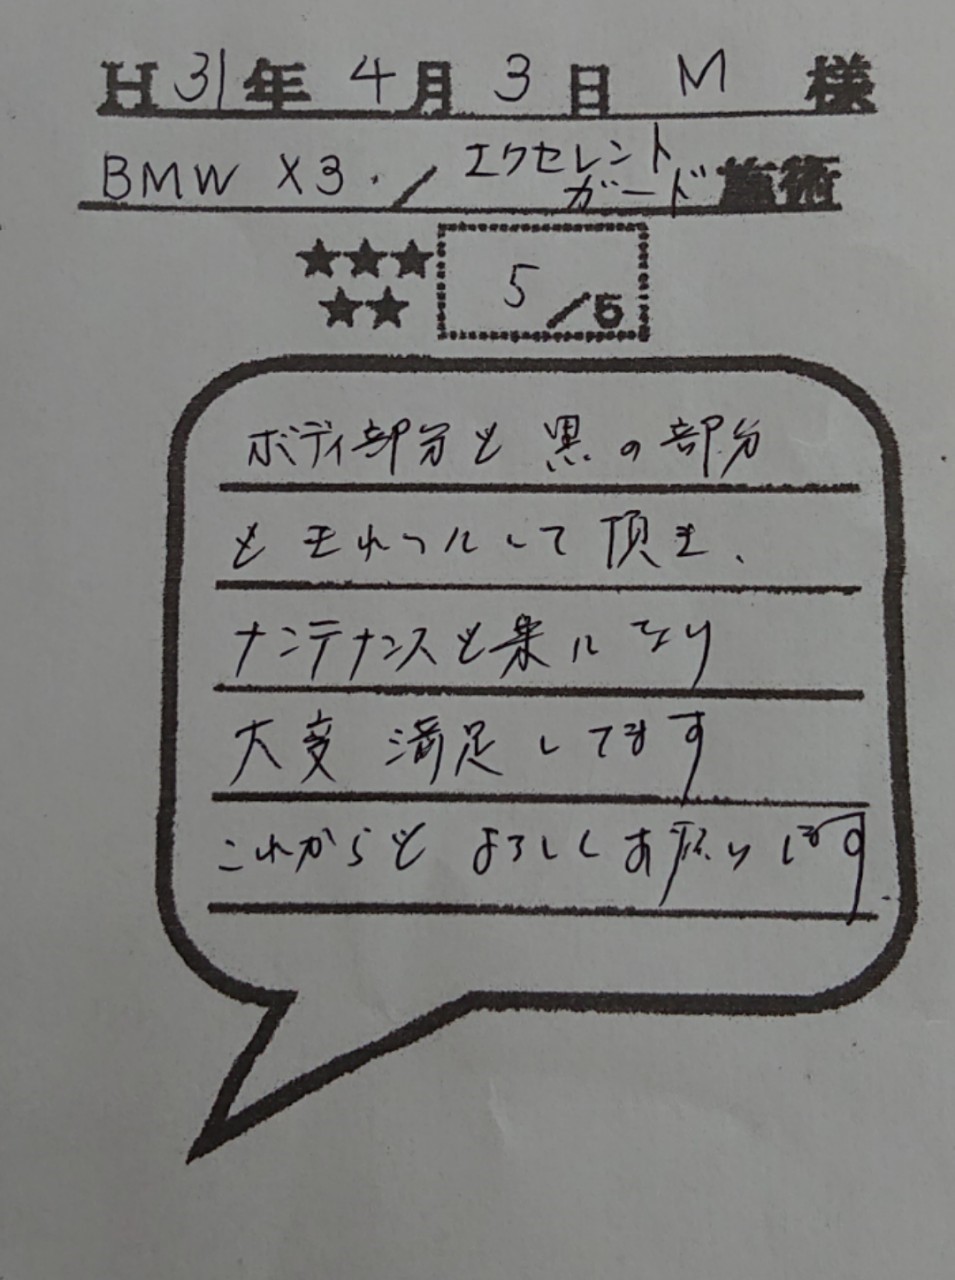 H31年4月3日 M 様
BMW X3. / エクセレントガード施術
★★★
★★
5/5
ボディ部分も黒の部分
もモールして頂き、
メンテナンスも楽になり
大変満足してます
これからもよろしくお願いします